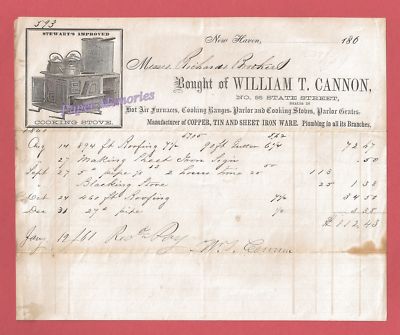 593
STEWART'S IMPROVED
COOKING STOVE.
Paper Memories
New Haven, 186
Messrs. Richards Brothers
Bought of WILLIAM T. CANNON,
NO. 86 STATE STREET,
DEALER IN
Hot Air Furnaces, Cooking Ranges, Parlor and Cooking Stoves, Parlor Grates.
Manufacturer of COPPER, TIN AND SHEET IRON WARE. Plumbing in all its Branches.
1860
Aug 14 894 ft Roofing 7½ 90 ft Gutter 6¼ 72.67
" 27 Making Sheet Iron Sign .50
Sept 27 5 # pipe 2 hours time 1 13
Blacking Stove 25 1.38
Oct 24 460 ft Roofing 7½ 34.50
Dec 31 27 # pipe 3.38
$ 112.43
Jany 19/61 Recd Pay
W. T. Cannon